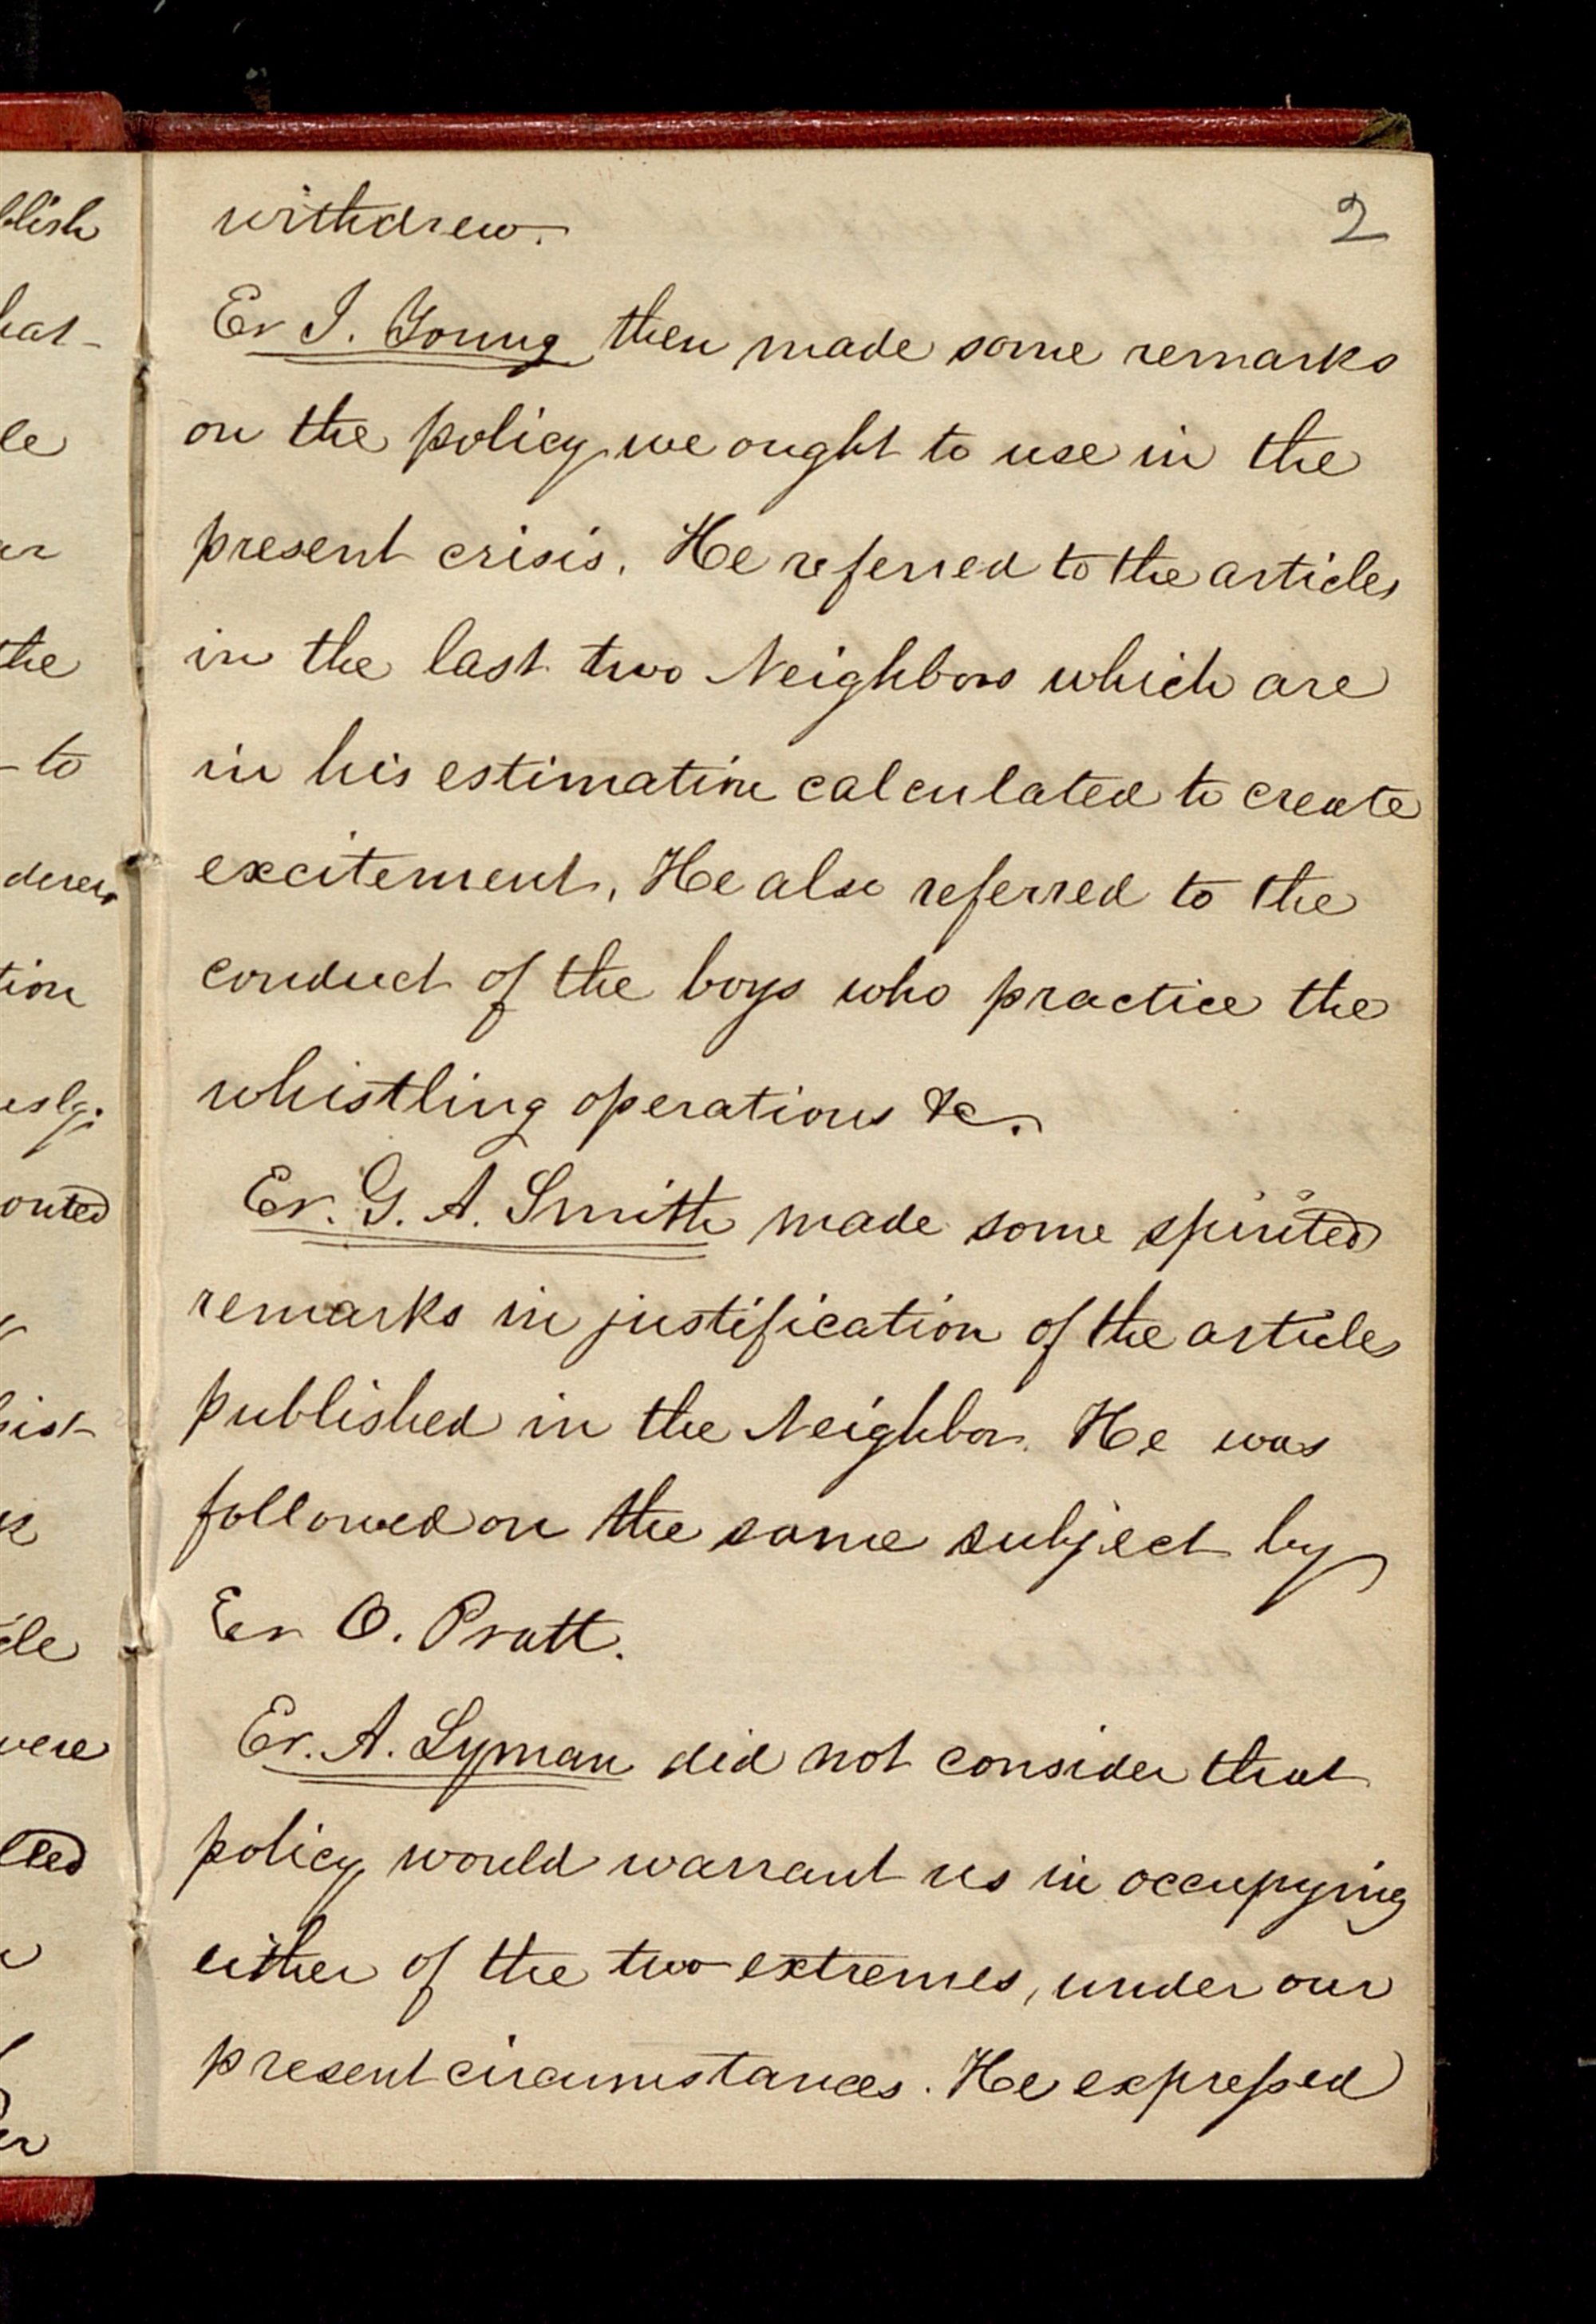 blish
hat-
le
ar
the
- to
derers
tion
esly.
outed
hist
k
cle
were
lled
er
withdrew. 2
Er I. Young then made some remarks
on the policy we ought to use in the
present crisis. He referred to the articles
in the last two Neighbors which are
in his estimation calculated to create
excitement, He also referred to the
conduct of the boys who practice the
whistling operations &c.
Er. G. A. Smith made some spirited
remarks in justification of the articles
published in the Neighbor. He was
followed on the same subject by
Er O. Pratt.
Er. A. Lyman did not consider that
policy would warrant us in occupying
either of the two extremes, under our
present circumstances. He expressed